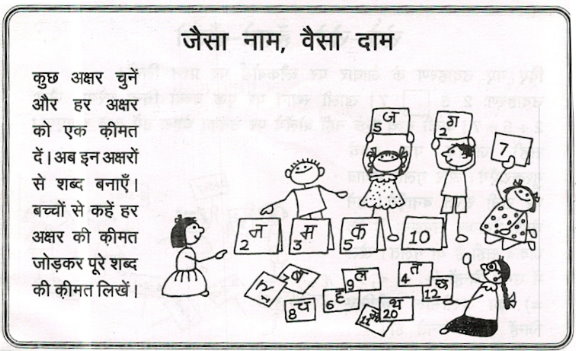 जैसा नाम, वैसा दाम
कुछ अक्षर चुनें
और हर अक्षर
को एक क़ीमत
दें। अब इन अक्षरों
से शब्द बनाएँ।
बच्चों से कहें हर
अक्षर की क़ीमत
जोड़कर पूरे शब्द
की क़ीमत लिखें।
ज 5
ग 2
7
न 2
म 3
क 5
10
ब 7
च 8
ह 6
ल 9
त 4
छ 12
थ 20